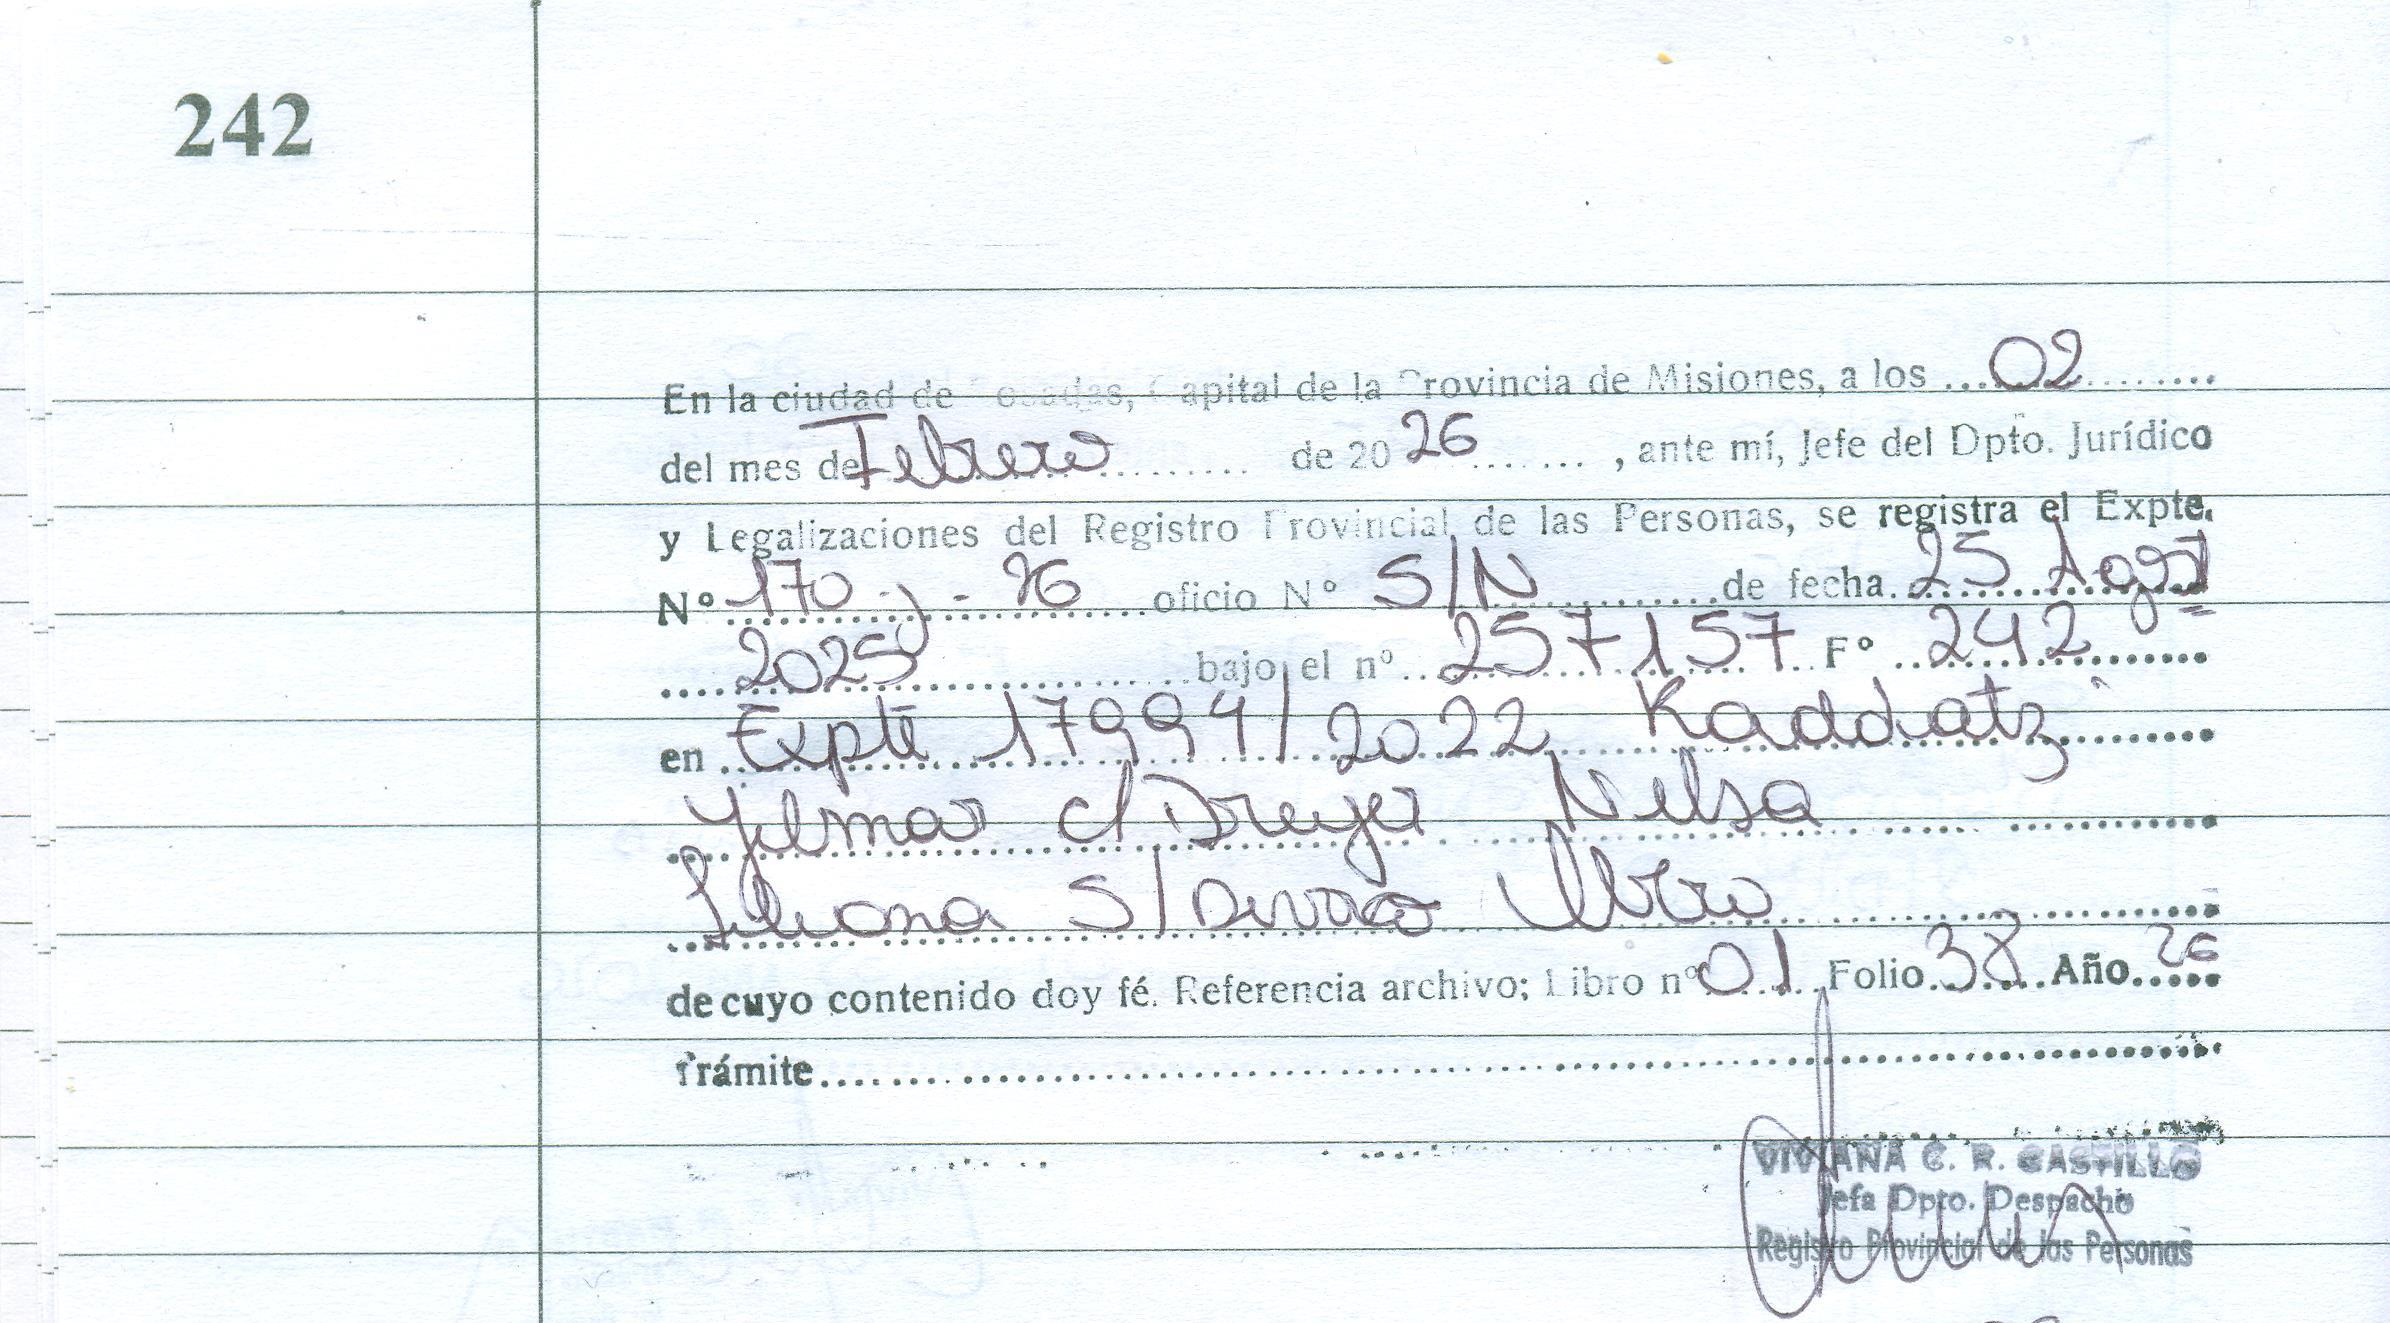 242
En la ciudad de Posadas, Capital de la Provincia de Misiones, a los ...02........
del mes de Febrero .......... de 20 26 ........, ante mí, Jefe del Dpto. Jurídico
y Legalizaciones del Registro Provincial de las Personas, se registra el Expte.
Nº 170 - J - 26 ....oficio Nº S/N ..........de fecha 25 Agost
2025 ..........bajo el nº 257157 Fº 242 ........
en Expte 17994/2022 Kaddatz ........
Yilmar c/ Dreyer Nelsa ........
Liliana S/ Divorcio ........
de cuyo contenido doy fé. Referencia archivo; Libro nº 01 Folio 38 Año 26
Trámite........................................
VIVIANA C. R. CASTILLO
Jefa Dpto. Despacho
Registro Provincial de las Personas